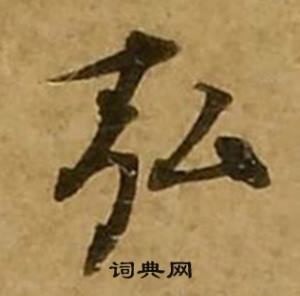 弘
词典网